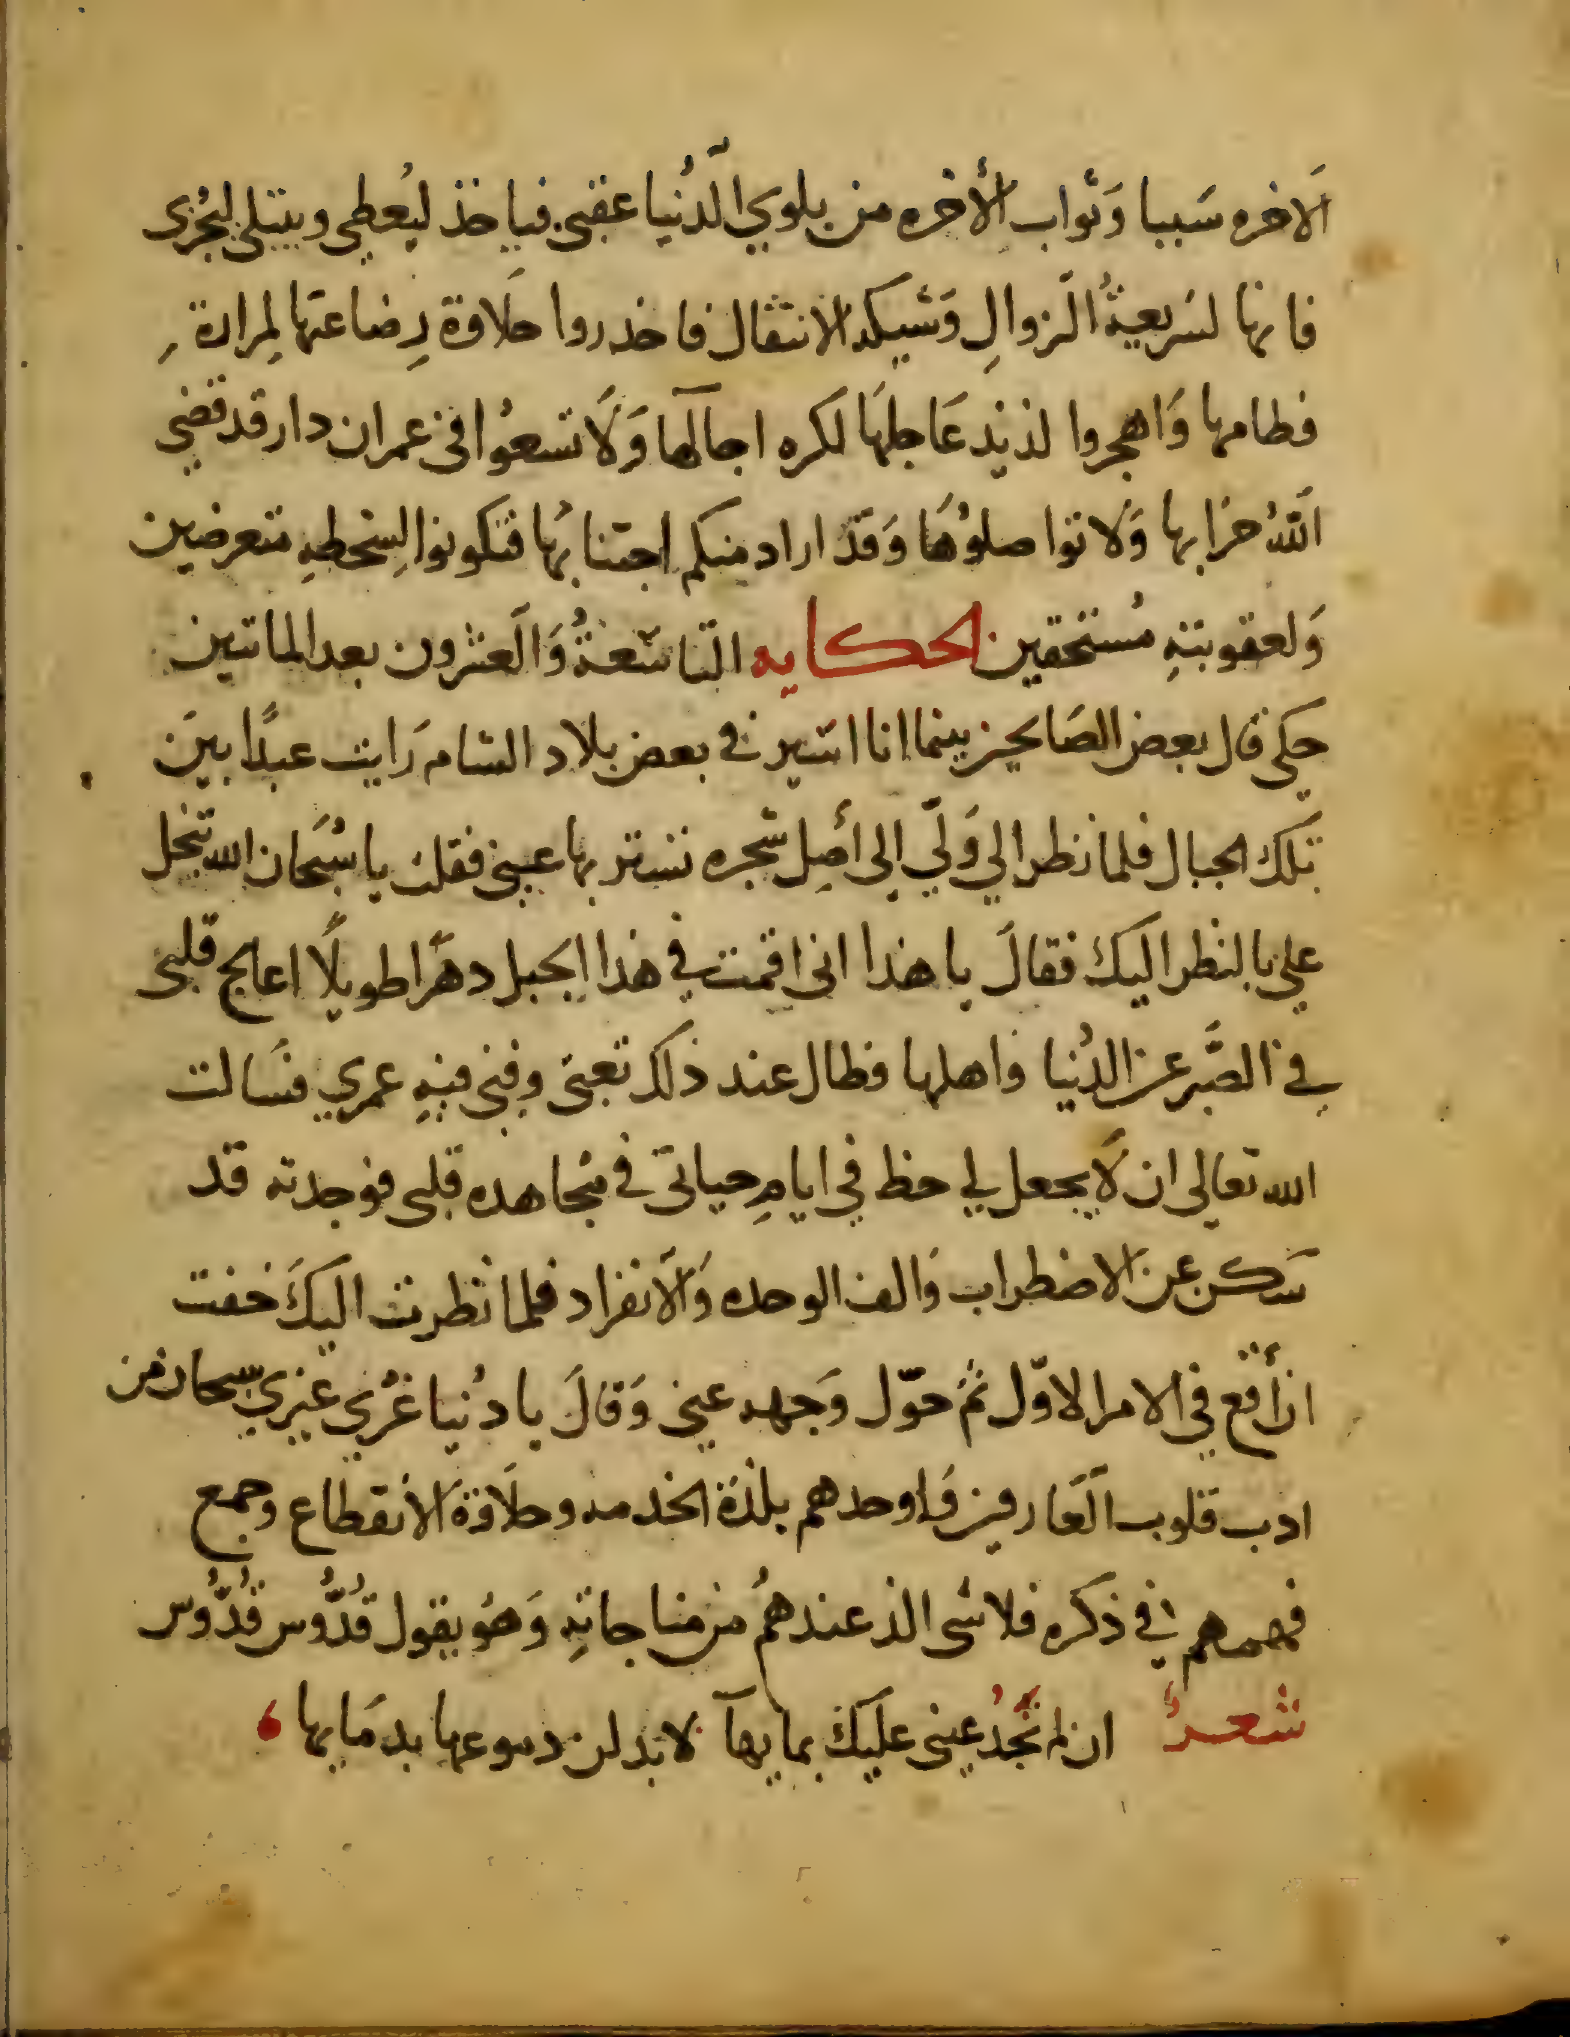 الاخره سَببا وَثواب الأخره من بلوي الدُنيا عقبى فياخذ ليُعطي ويبتلى ليُجزى
فانها لسَريعةُ الزوالِ وَشيكه الانتقال فاحذروا حلاوة رِضاعتها لِمرارة
فطامها وَاهجروا لذيذ عَاجلهَا لكره اجالها وَلَا تسعوُا في عمران دار قد قضي
اللهُ خرابها وَلا تواصلوُهَا وَقد اراد منكم اجتنابهُا فتكونوا لِسخطهِ متعرضين
وَلعقوبتهِ مُستحقين الحكايه التاسْعةُ وَالعشرون بعد الماتين
حكي قال بعض الصَالحين بينما انا اسْير في بعض بلاد الشام رَايت عبدًا بينَ
تلك الجبال فلما نظر الي وَليّ إلى أصِل شجره تستر بها عيني فقلت يا سُبحَان الله تبخل
علي بالنظر اليك فقالَ يا هذا اني اقمت في هذا الجبل دهَرا طويلًا اعالج قلبى
في الصَّبر عن الدُنيا واهلها فطال عند ذلك تعبى وفنى فيهِ عمري فسَالت
الله تعالى ان لَا يجعل لي حظ في ايامِ حياتى في مُجاهده قلبى فوجدته قد
سَكن عن الاضطراب وَالف الوحده وَالانفراد فلما نظرت اليكَ خفت
ان أقع في الامر الاوّل ثمُ حوّل وَجهه عيني وَقالَ يا دُنيا غُري غيري سبحان من
ادب قلوب العَارفين وَاوحدهم بلذة الخدمه وحلَاوة الانقطاع وجمع
فهمهم في ذكره فلا شى الذ عندهمُ من مناجاتهِ وَهوُ يقول قدُّوُس قدُّوُس
شعرُ ان لم تجُد عينى عليك بمايهآ لابدلن دموعها بدمَايها